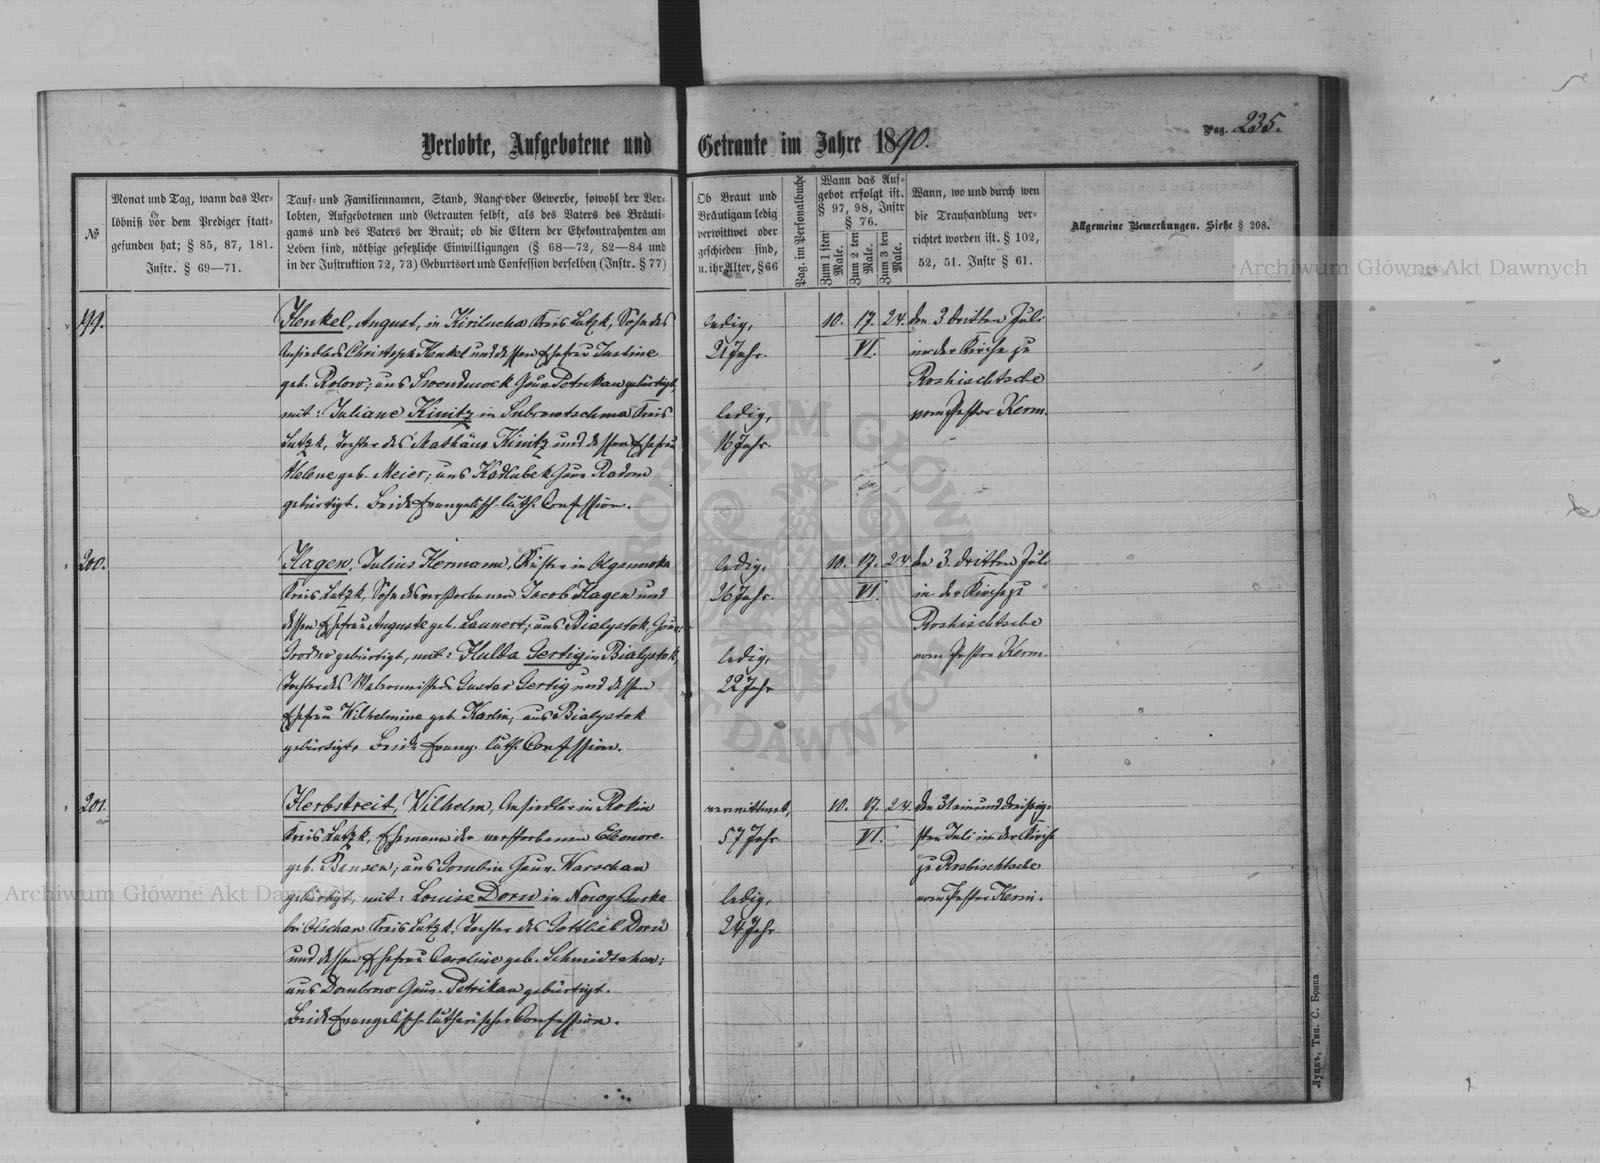 Verlobte, Aufgebotene und Getraute im Jahre 1890.
Pag. 235.
№
Monat und Tag, wann das Ver-
löbniß vor dem Prediger statt-
gefunden hat; § 85, 87, 181.
Instr. § 69—71.
Tauf- und Familiennamen, Stand, Rang oder Gewerbe, sowohl der Ver-
lobten, Aufgebotenen und Getrauten selbst, als des Vaters des Bräuti-
gams und des Vaters der Braut; ob die Eltern der Ehekontrahenten am
Leben sind, nöthige gesetzliche Einwilligungen (§ 68—72, 82—84 und
in der Instruktion 72, 73) Geburtsort und Confession derselben (Instr. § 77)
Ob Braut und
Bräutigam ledig
verwittwet oder
geschieden sind,
u. ihr Alter, § 66
Pag. im Personalbuche
Wann das Auf-
gebot erfolgt ist.
§ 97, 98, Instr
§ 76.
Zum 1 sten Male.
Zum 2 ten Male.
Zum 3 ten Male.
Wann, wo und durch wen
die Trauhandlung ver-
richtet worden ist. § 102,
52, 51. Instr § 61.
Allgemeine Bemerkungen. Siehe § 208.
199.
Henkel, August, in Kirilucha Kreis Lutzk, Sohn des
Ansiedlers Christoph Henkel und dessen Ehefrau Justine
geb. Rolow; aus Gouv. Petrikau gebürtigt,
mit: Juliane Kinitz in Kreis
Lutzk, Tochter des Mathäus Kinitz und dessen Ehefrau
Helene geb. Meier; aus Kadlubek Gouv. Radom
gebürtigt. Beide Evangelisch-luth. Confession.
ledig,
21 Jahr.
ledig,
16 Jahr.
10. 17. 24.
VI.
den 3 dritten Juli
in der Kirche zu
Roshischtsche
vom Pastor Kerm.
200.
Hagen, Julius Hermann, Küster in Olganowka
Kreis Lutzk, Sohn des verstorbenen Jacob Hagen und
dessen Ehefrau Auguste geb. Launert; aus Bialystok, Gouv.
Grodno gebürtigt, mit: Hulda Gertig in Bialystok,
Tochter des Webermeisters Gustav Gertig und dessen
Ehefrau Wilhelmine geb. Karlin, aus Bialystok
gebürtigt. Beide Evang. luth. Confession.
ledig,
26 Jahr.
ledig,
22 Jahr
10. 17. 24.
VI.
den 3. dritten Juli
in der Kirche zu
Roshischtsche
vom Pastor Kerm.
201.
Herbstreit, Wilhelm, Ansiedler in Rokin
Kreis Lutzk, Ehemann der verstorbenen Eleonore
geb. Bensen; aus Gombin Gouv. Warschau
gebürtigt, mit: Louise Dorn in Nowog
bei Olschan Kreis Lutzk, Tochter des Gottlieb Dorn
und dessen Ehefrau Caroline geb.
aus Dombrow Gouv. Petrikau gebürtigt.
Beide Evangelisch-lutherischer Confession.
verwittwet,
57 Jahr
ledig,
24 Jahr
10. 17. 24.
VI.
den 31 einunddreißig-
sten Juli in der Kirche
zu Roshischtsche
vom Pastor Kerm.
Луцкъ, Тип. С. Бонка
Archiwum Główne Akt Dawnych
Archiwum Główne Akt Dawnych
ARCHIWUM GŁÓWNE AKT DAWNYCH